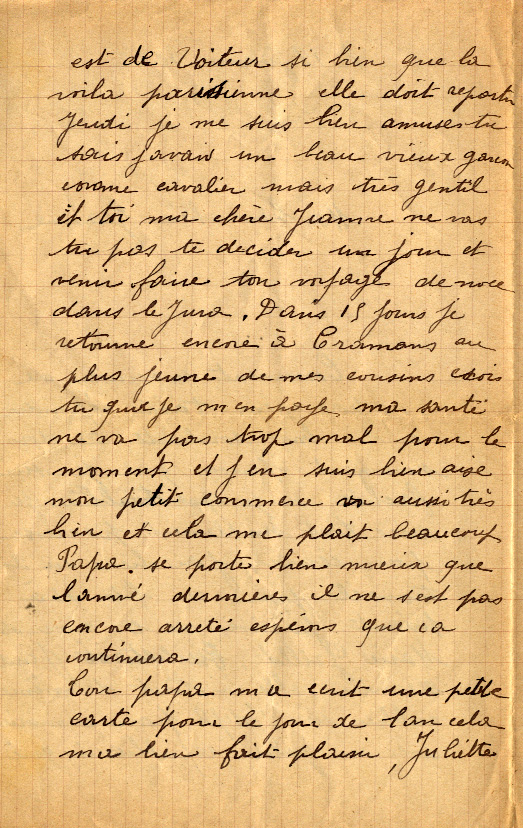 est de Voiteur si bien que la
voila parisienne elle doit repartir
Jeudi je me suis bien amusee tu
sais javais un beau vieux garcon
comme cavalier mais très gentil
et toi ma chère Jeanne ne vas
tu pas te decider un jour et
venir faire ton voyage de noce
dans le Jura. Dans 15 jours je
retourne encore à Cramans au
plus jeune de mes cousins crois
tu que je men paye ma santé
ne va pas trop mal pour le
moment et j en suis bien aise
mon petit commerce va aussi très
bien et cela me plait beaucoup
Papa. se porte bien mieux que
lanné dernières il ne sest pas
encore arreté espérons que ca
continuera.
Ton papa ma ecrit une petite
carte pour le jour de lan cela
ma bien fait plaisir, Juliette